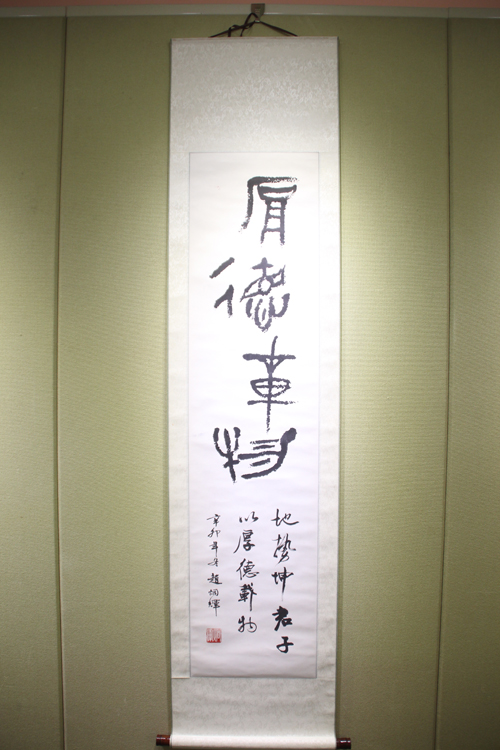 厚德載物
地勢坤君子
以厚德載物
辛卯年冬 趙炯輝